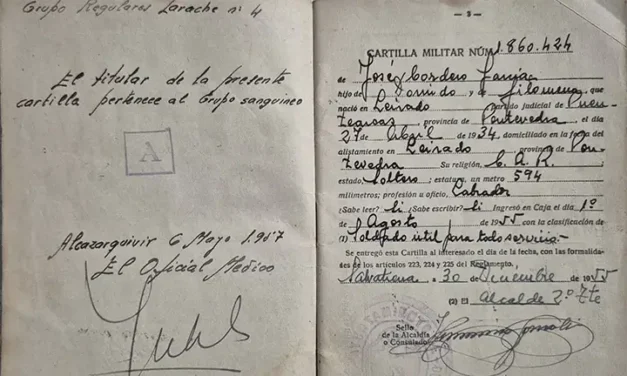 Grupo Regulares Larache nº 4
El titular de la presente
cartilla pertenece al Grupo sanguineo
A
Alcazarquivir 6 Mayo 1.957
El Oficial Medico
— 3 —
CARTILLA MILITAR NÚM 1.860.424
de José Cordero
hijo de y de Filomena, que
nació en Leirado Partido judicial de Puen-
teareas, provincia de Pontevedra, el día
27 de Abril de 1934, domiciliado en la fecha del
alistamiento en Leirado, provincia de Pon-
tevedra Su religión, C. A. R.;
estado, Soltero; estatura, un metro 594
milímetros; profesión u oficio, Labrador
¿Sabe leer? Si ¿Sabe escribir? Si Ingresó en Caja el día 1º
de Agosto de 1955 con la clasificación de
(1) Soldado útil para todo servicio.—
Se entregó esta Cartilla al interesado el día de la fecha, con las formalida-
des de los artículos 223, 224 y 225 del Reglamento.
Salvatierra a 30 de de 1955
(2) El Alcalde 2º Tte
Sello
de la Alcaldía
o Consulado